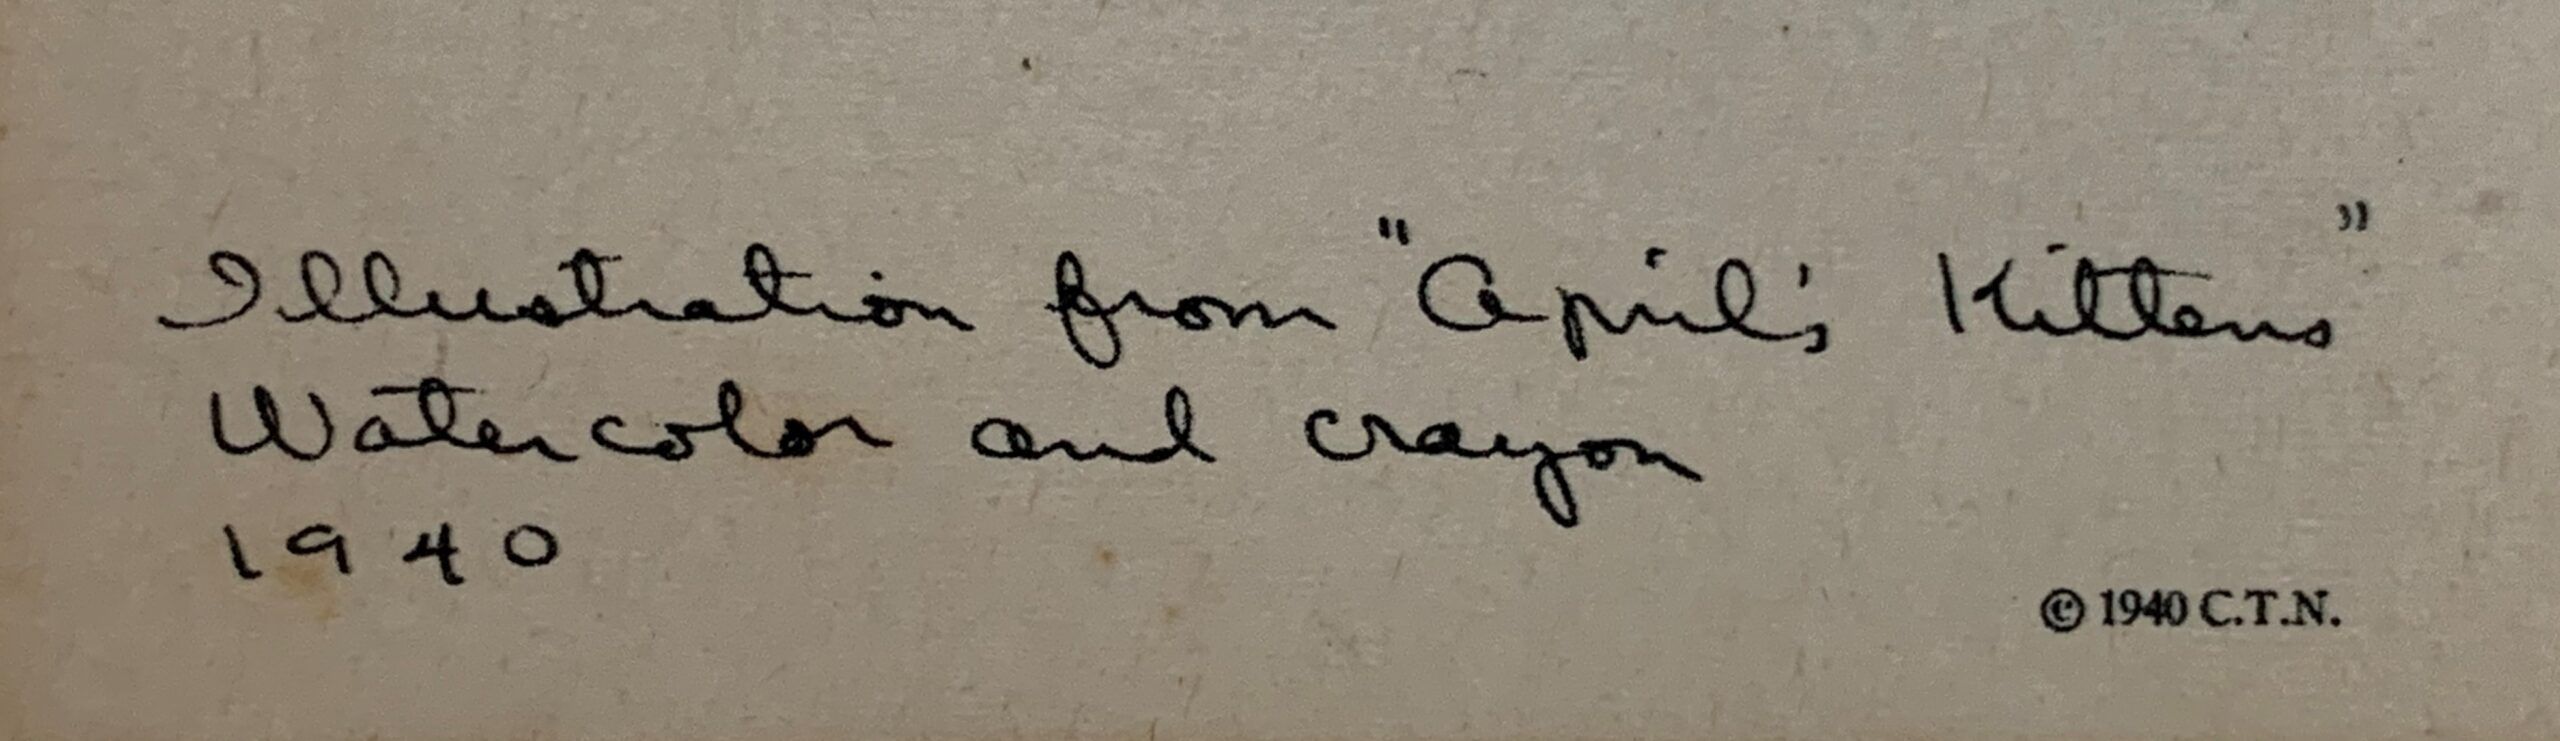 Illustration from "April's Kittens"
Watercolor and crayon
1940
© 1940 C.T.N.